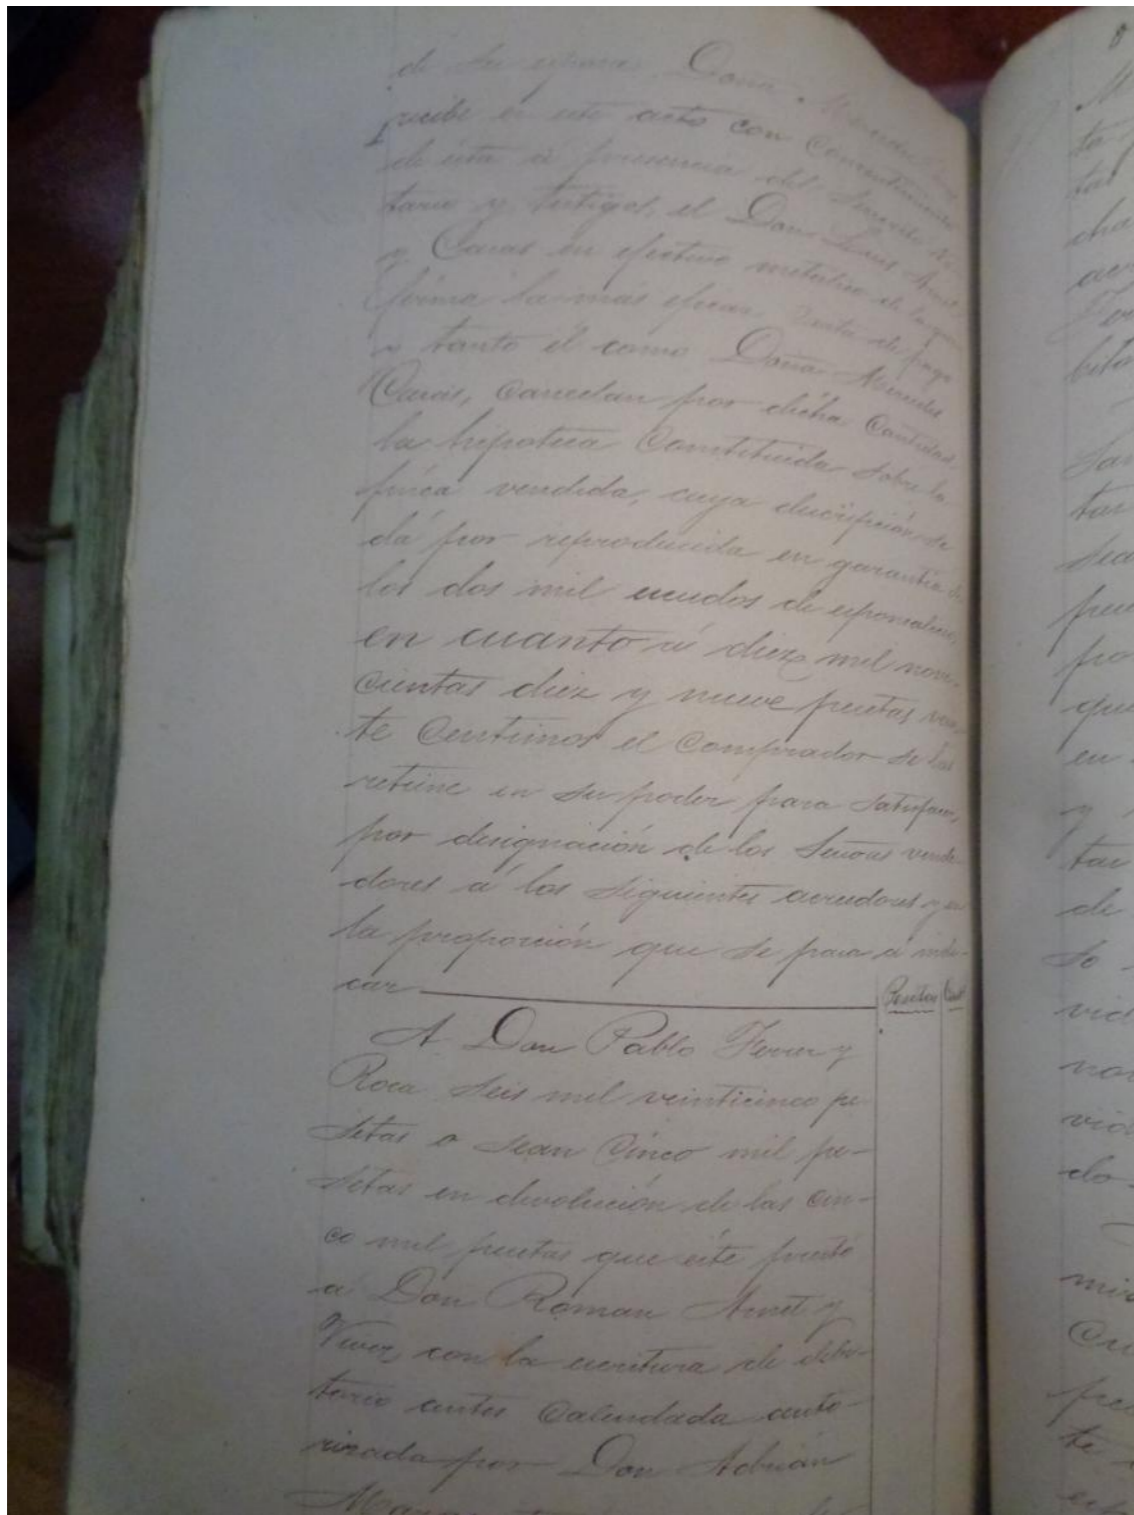 de su esposa Doña Mercedes
recibe en este acto con consentimiento
de ésta á presencia del infrascrito No-
tario y testigos, el Don Luis Amet
y Casas en efectivo metálico de lo que
firma la más eficaz carta de pago
y tanto él como Doña Mercedes
Casas, cancelan por dicha Cantidad
la hipoteca Constituida sobre la
finca vendida, cuya descripción se
dá por reproducida en garantía de
los dos mil escudos de esponsalicio,
en cuanto á diez mil nove-
cientas diez y nueve pesetas vein-
te Centimos el Comprador se las
retiene en su poder para satisfacer,
por designación de los Señores vende-
dores á los siguientes acreedores y en
la proporción que se pasa á indi-
car
Pesetas Cents
A Don Pablo Ferrer y
Roca seis mil veinticinco pe-
setas o sean Cinco mil pe-
setas en devolución de las cin-
co mil pesetas que éste prestó
á Don Roman Amet y
Viver, con la escritura de debi-
torio antes Calendada auto-
rizada por Don Adrián
M
ta
tas
cha
acr
Fer
bito
tas
pes
por
que
en
y
tas
de
so
vid
nov
vid
do
mis
Cu
te